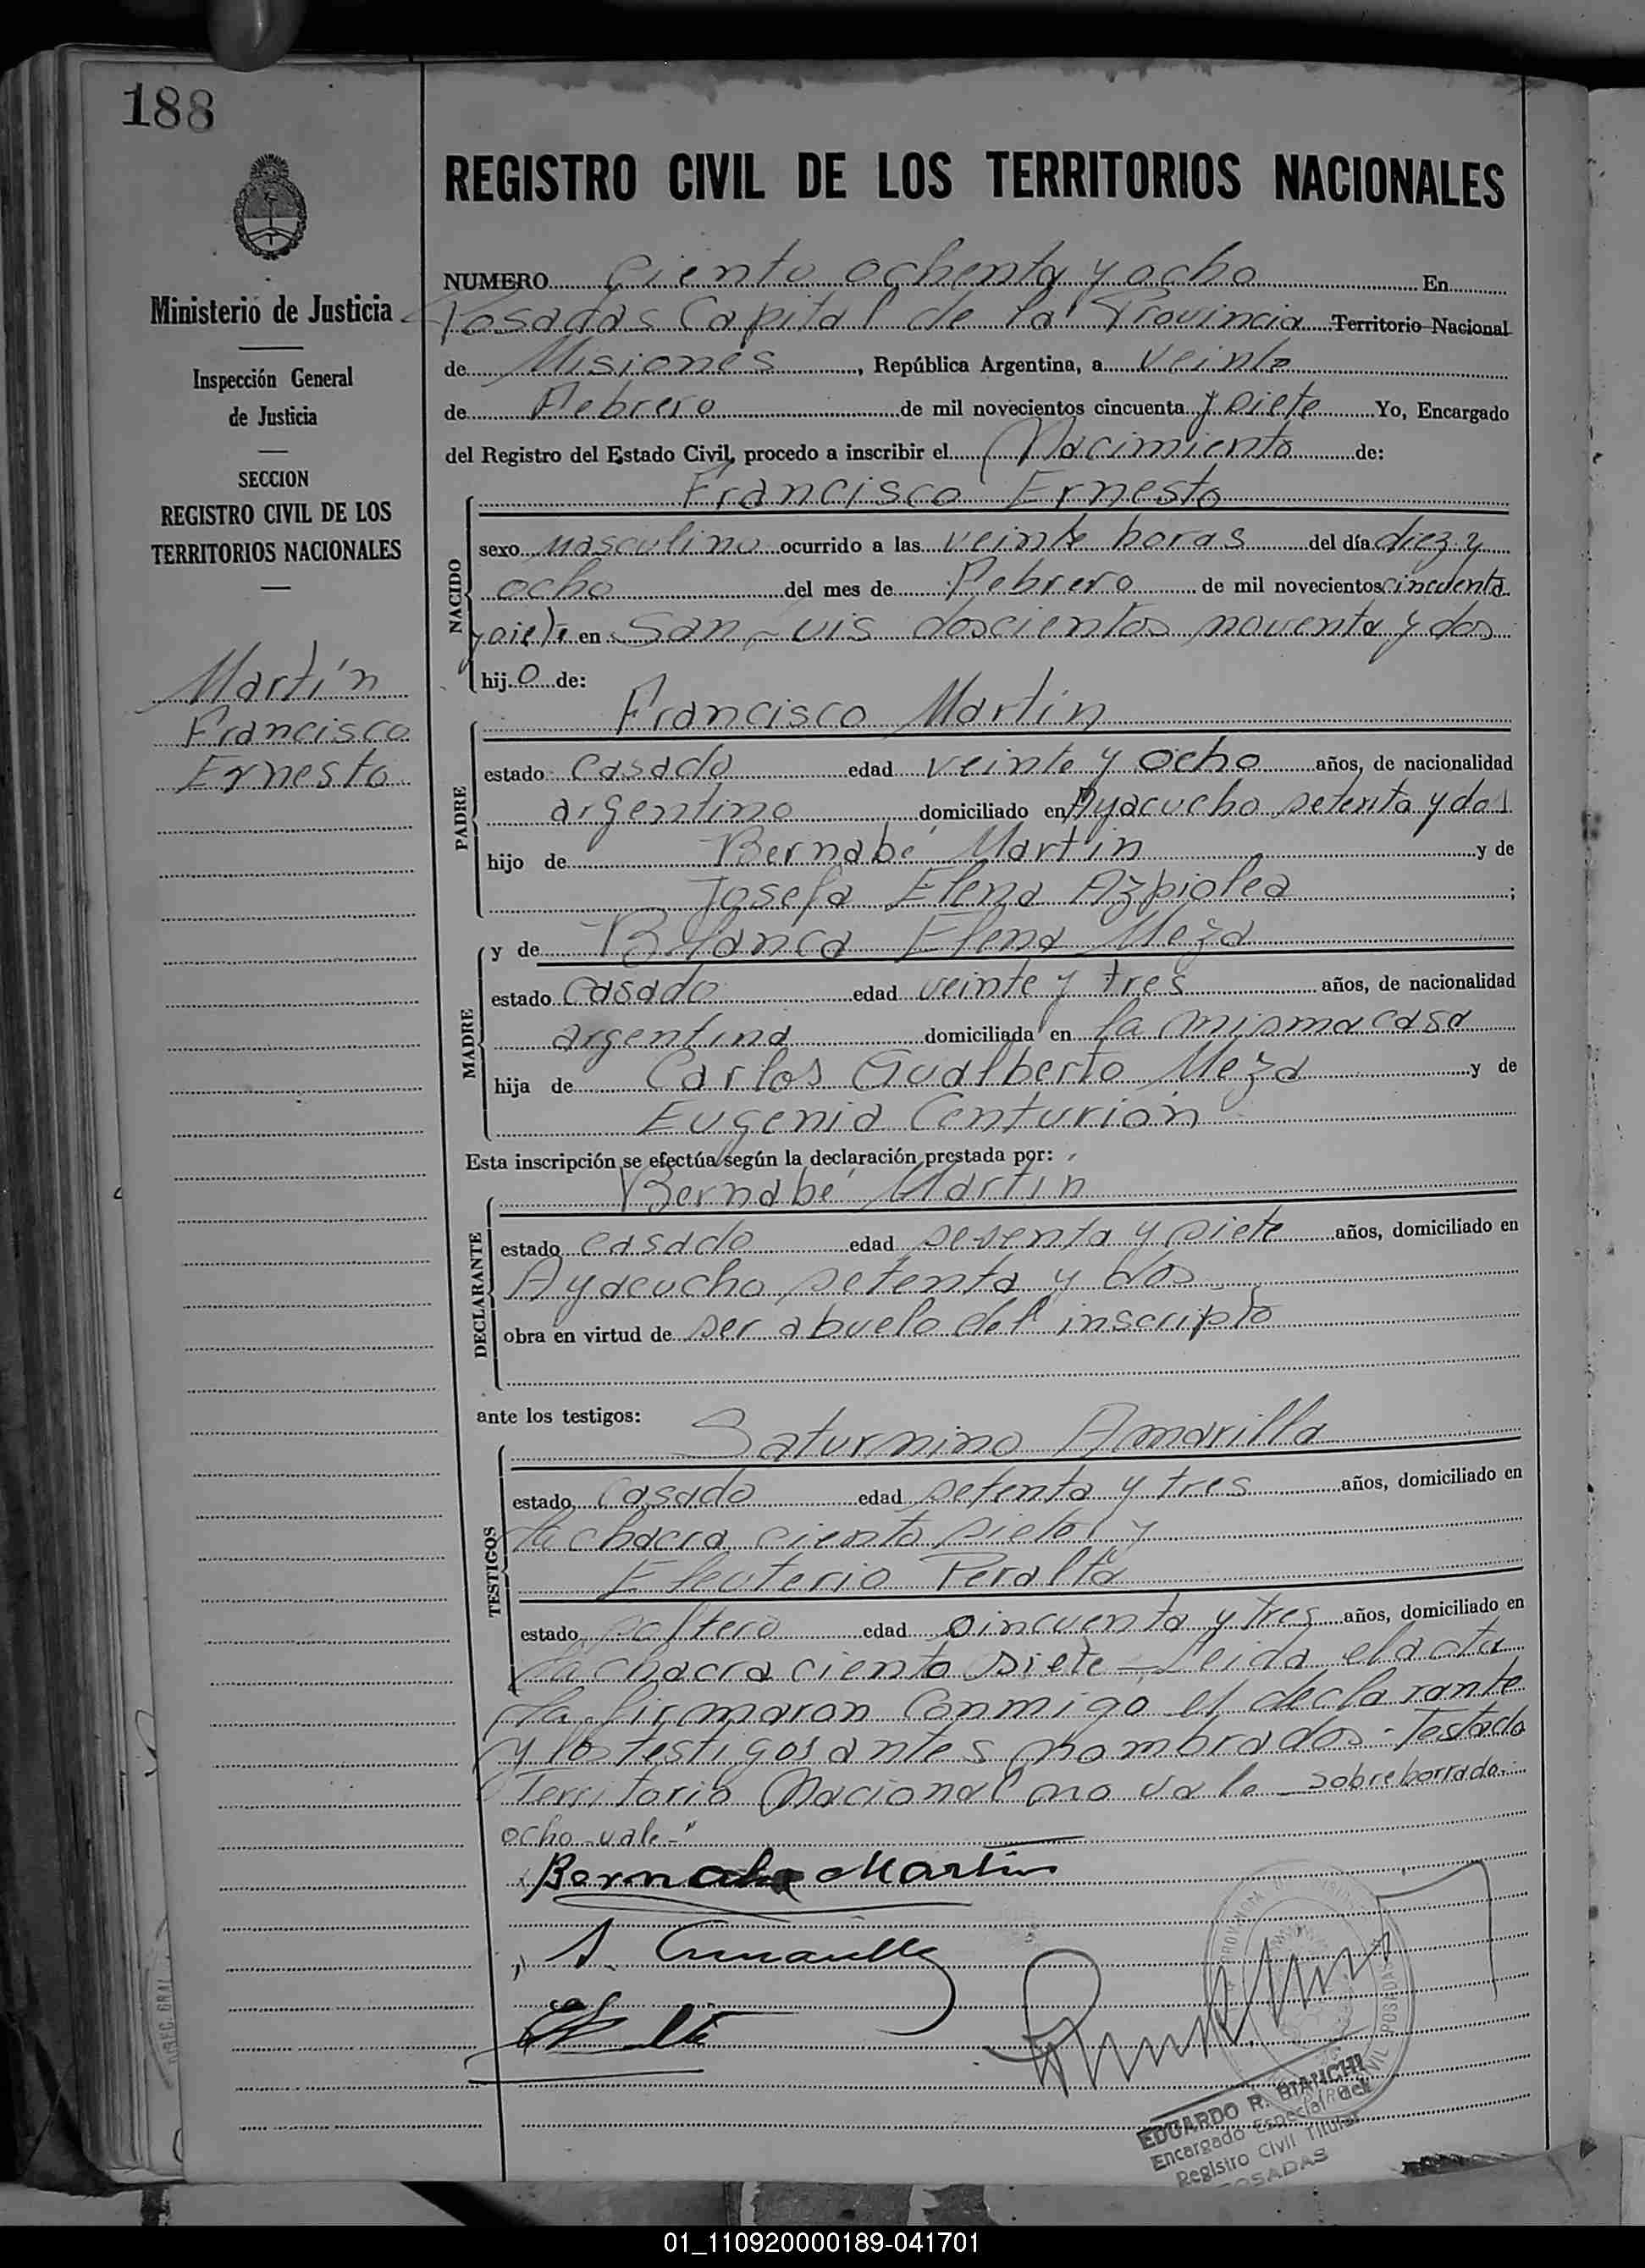 188
REGISTRO CIVIL DE LOS TERRITORIOS NACIONALES
Ministerio de Justicia
Inspección General
de Justicia
SECCION
REGISTRO CIVIL DE LOS
TERRITORIOS NACIONALES
Martín
Francisco
Ernesto
NUMERO Ciento ochenta y ocho En
Posadas Capital de la Provincia Territorio Nacional
de Misiones, República Argentina, a veinte
de Febrero de mil novecientos cincuenta y siete Yo, Encargado
del Registro del Estado Civil, procedo a inscribir el Nacimiento de:
Francisco Ernesto
NACIDO
sexo masculino ocurrido a las veinte horas del día diez y
ocho del mes de Febrero de mil novecientos cincuenta
y siete en San Luis doscientos noventa y dos
hijo de:
Francisco Martín
PADRE
estado casado edad veinte y ocho años, de nacionalidad
argentino domiciliado en Ayacucho setenta y dos
hijo de Bernabé Martín y de
Josefa Elena Azpiolea;
MADRE
y de Blanca Elena Meza
estado Casado edad veinte y tres años, de nacionalidad
argentina domiciliada en la misma casa
hija de Carlos Gualberto Meza y de
Eugenia Centurión
Esta inscripción se efectúa según la declaración prestada por:
Bernabé Martín
DECLARANTE
estado casado edad sesenta y siete años, domiciliado en
Ayacucho setenta y dos
obra en virtud de ser abuelo del inscripto
ante los testigos:
Saturnino Amarilla
TESTIGOS
estado casado edad setenta y tres años, domiciliado en
la chacra ciento siete y
Eleuterio Peralta
estado soltero edad cincuenta y tres años, domiciliado en
la chacra ciento siete - Leida el acta
la firmaron conmigo el declarante
y los testigos antes nombrados - Testado
Territorio Nacional no vale - sobreborrado:
ocho - vale -"
Bernabe Martin
S. Amarilla
EDUARDO R. BIANCHI
Encargado Especial del
Registro Civil Titular
POSADAS
01_110920000189-041701